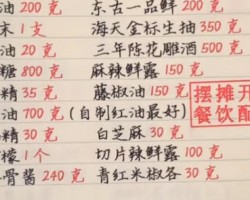 油 200 克 东古一品鲜 200 克
末 1 支 海天金标生抽 350 克
油 20 克 三年陈花雕酒 500 克
糖 800 克 麻辣鲜露 150 克
精 35 克 藤椒油 150 克
油 700 克 (自制红油最好)
精 30 克 白芝麻 30 克
檬 1 个 切片辣鲜露 100 克
骨酱 240 克 青红米椒各 30 克
摆摊开
餐饮配